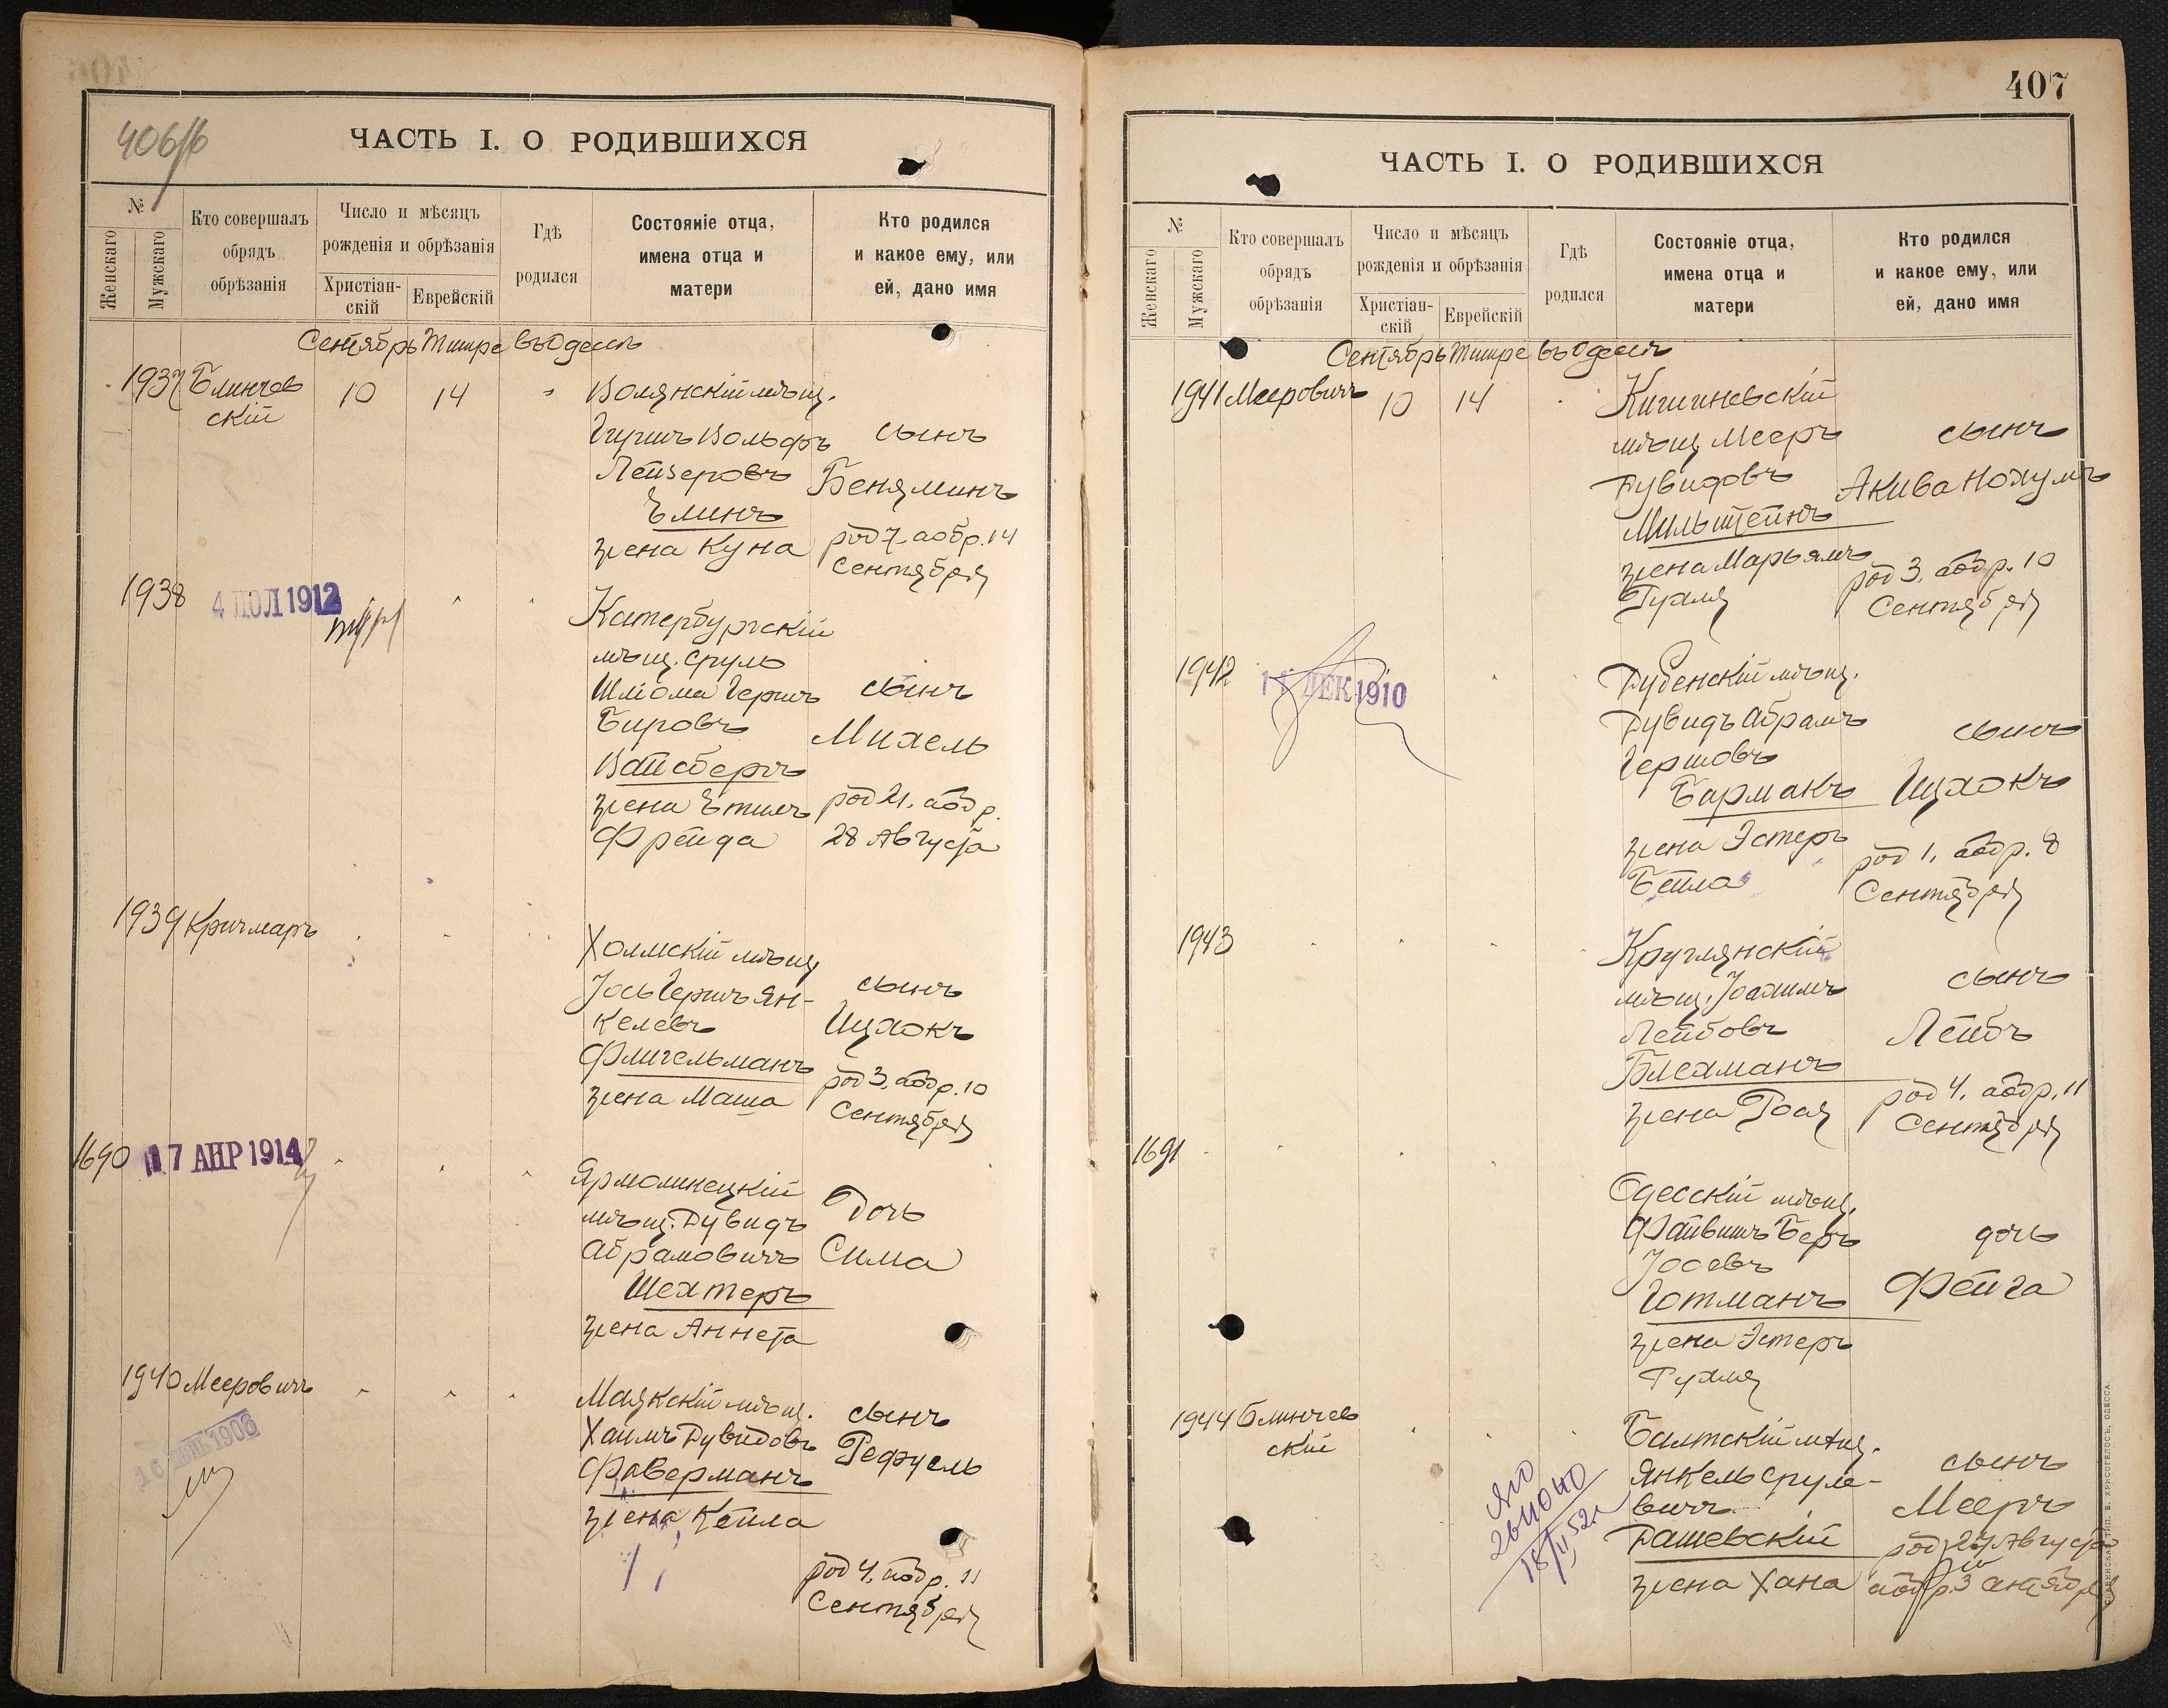 406/б
ЧАСТЬ I. О РОДИВШИХСЯ
№
Женскаго
Мужскаго
Кто совершалъ
обрядъ
обрѣзанія
Число и мѣсяцъ
рожденія и обрѣзанія
Христіан-
скій
Еврейскій
Гдѣ
родился
Состояніе отца,
имена отца и
матери
Кто родился
и какое ему, или
ей, дано имя
Сентябрь Тишре въ Одессѣ
1937 Блинчев
скій
10 14
Волянскій мѣщ.
Гиршъ Вольфъ
Лейзеровъ
Блинъ
жена Куна
сынъ
Беняминъ
род 7. а обр. 14
Сентября
1938
4 ІЮЛ 1912
Катербургскій
мѣщ. Сруль
Шліома Гершъ
Бировъ
Вайсбергъ
жена Этиль
Фрейда
сынъ
Михель
род 21. а обр.
28 Августа
1939 Кричмаръ
Холмскій мѣщ
Іось Гершъ Ян-
келевъ
Флигельманъ
жена Маша
сынъ
Ицхокъ
род 3. а обр. 10
Сентября
1690
17 АПР 1914
Ярмолинецкій
мѣщ. Дувидъ
Абрамовичъ
Шехтеръ
жена Аннета
дочь
Сима
1940 Мееровичъ
1908
Маякскій мѣщ.
Хаимъ Дувидовъ
Фаверманъ
жена Кейла
сынъ
Рефуель
род 4. а обр. 11
Сентября
407
ЧАСТЬ I. О РОДИВШИХСЯ
№
Женскаго
Мужскаго
Кто совершалъ
обрядъ
обрѣзанія
Число и мѣсяцъ
рожденія и обрѣзанія
Христіан-
скій
Еврейскій
Гдѣ
родился
Состояніе отца,
имена отца и
матери
Кто родился
и какое ему, или
ей, дано имя
Сентябрь Тишре въ Одессѣ
1941 Мееровичъ
10 14
Кишиневскій
мѣщ Мееръ
Дувидовъ
Мильштейнъ
жена Марьямъ
Рухля
сынъ
Акива Нохумъ
род 3. а обр. 10
Сентября
1942
ДЕК 1910
Дубенскій мѣщ.
Дувидъ Абрамъ
Гершовъ
Бармакъ
жена Эстеръ
Бейла
сынъ
Ицхокъ
род 1. а обр. 8
Сентября
1943
Круглянскій
мѣщ. Іоахимъ
Лейбовъ
Блехманъ
жена Роая
сынъ
Лейбъ
род 4. а обр. 11
Сентября
1691
Одесскій мѣщ.
Файвишъ Беръ
Іосевъ
Готманъ
жена Эстеръ
Рухля
дочь
Фейга
1944 Блинчев
скій
Балтскій мѣщ.
Янкель Сруле-
вичъ
Дашевскій
жена Хана
сынъ
Мееръ
род 27 Августа
а обр. 3 Сентября
18/II 52 г